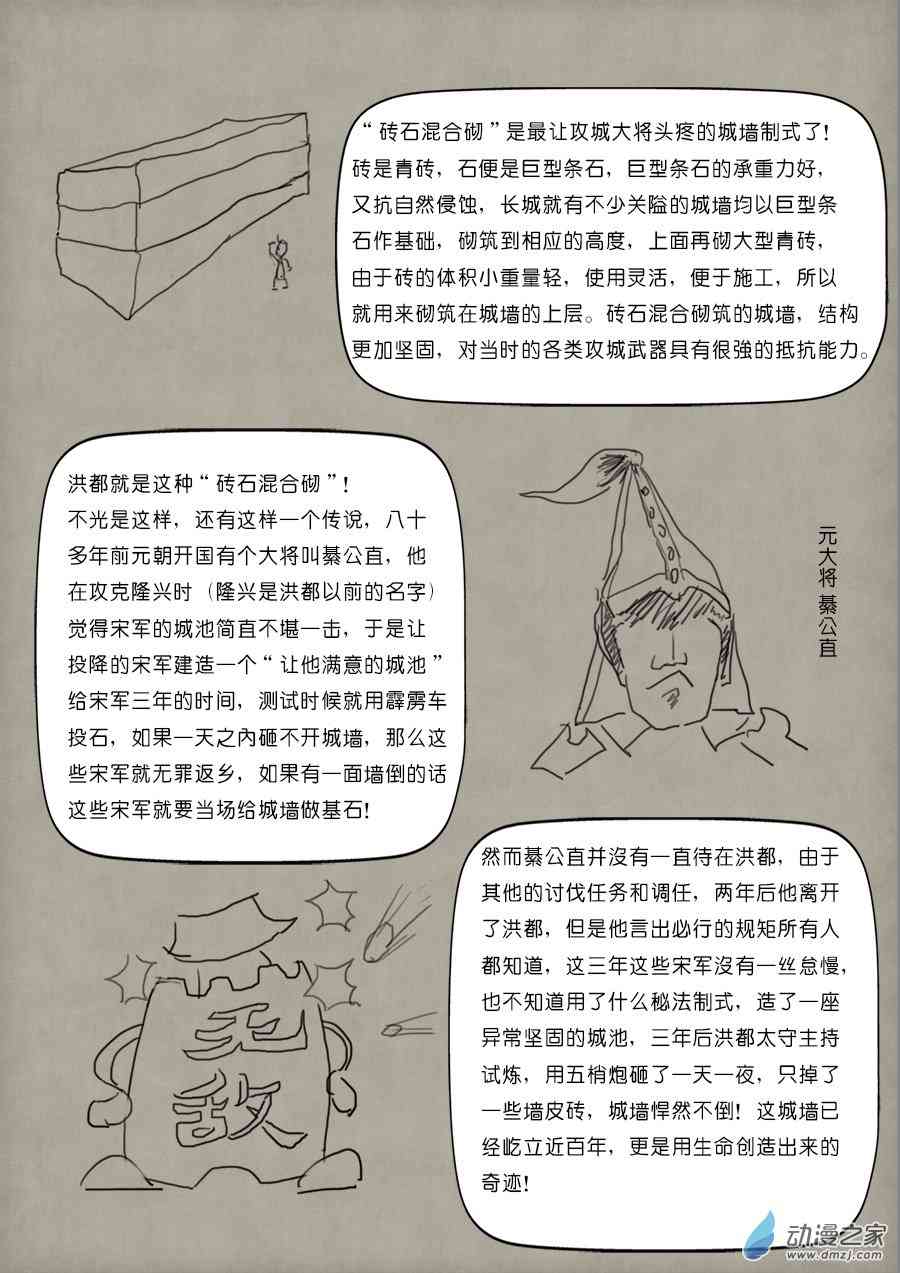 “砖石混合砌”是最让攻城大将头疼的城墙制式了！
砖是青砖，石便是巨型条石，巨型条石的承重力好，
又抗自然侵蚀，长城就有不少关隘的城墙均以巨型条
石作基础，砌筑到相应的高度，上面再砌大型青砖，
由于砖的体积小重量轻，使用灵活，便于施工，所以
就用来砌筑在城墙的上层。砖石混合砌筑的城墙，结构
更加坚固，对当时的各类攻城武器具有很強的抵抗能力。
洪都就是这种“砖石混合砌”！
不光是这样，还有这样一个传说，八十
多年前元朝开国有个大将叫綦公直，他
在攻克隆兴时（隆兴是洪都以前的名字）
觉得宋军的城池简直不堪一击，于是让
投降的宋军建造一个“让他满意的城池”
给宋军三年的时间，测试时候就用霹雳车
投石，如果一天之內砸不开城墙，那么这
些宋军就无罪返乡，如果有一面墙倒的话
这些宋军就要当场给城墙做基石！
元大将 綦公直
然而綦公直并沒有一直待在洪都，由于
其他的讨伐任务和调任，两年后他离开
了洪都，但是他言出必行的规矩所有人
都知道，这三年这些宋军沒有一丝怠慢，
也不知道用了什么秘法制式，造了一座
异常坚固的城池，三年后洪都太守主持
试炼，用五梢炮砸了一天一夜，只掉了
一些墙皮砖，城墙悍然不倒！这城墙已
经屹立近百年，更是用生命创造出来的
奇迹！
无
敌
动漫之家
www.dmzj.com